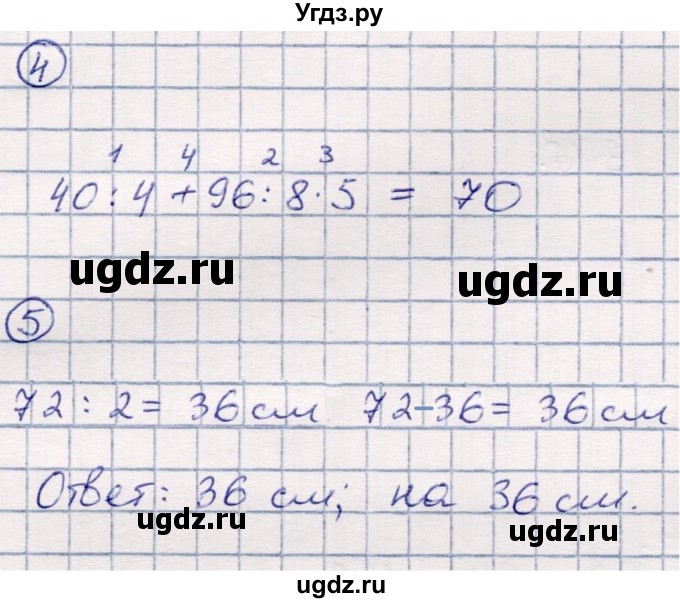 Угдз.ру
4
1 4 2 3
40:4+96:8·5 = 70
ugdz.ru ugdz.ru
5
72:2= 36 см 72-36= 36 см
Ответ: 36 см; на 36 см.
ugdz.ru ugdz.ru
ugdz.ru